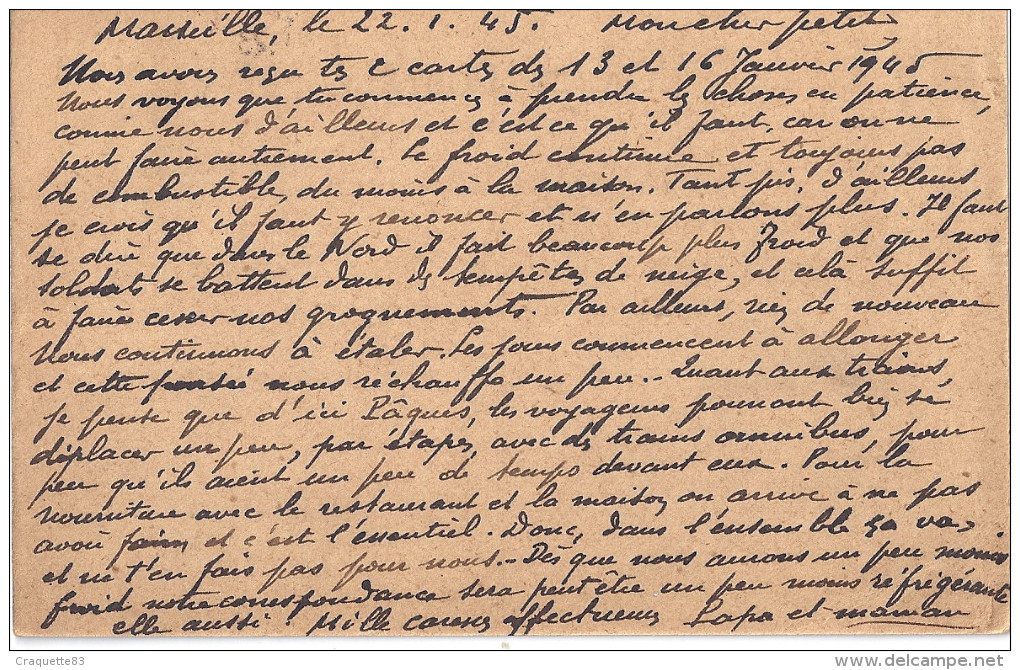 Marseille, le 22. 1. 45. Mon cher petit,
Nous avons reçu tes 2 cartes des 13 et 16 Janvier 1945
Nous voyons que tu commences à prendre les choses en patience,
comme nous d'ailleurs et c'est ce qu'il faut, car on ne
peut faire autrement. Le froid continue et toujours pas
de combustible, du moins à la maison. Tant pis, d'ailleurs
je crois qu'il faut y renoncer et n'en parlons plus. Il faut
se dire que dans le Nord il fait beaucoup plus froid et que nos
soldats se battent dans des tempêtes de neige, et celà suffit
à faire cesser nos grognements. Par ailleurs, rien de nouveau
Nous continuons à étaler. Les jours commencent à allonger
et cette pensée nous réchauffe un peu.. Quant aux trains,
je pense que d'ici Pâques, les voyageurs pourront bien se
déplacer un peu, par étapes, avec des trains omnibus, pour
peu qu'ils aient un peu de temps devant eux. Pour la
nourriture avec le restaurant et la maison on arrive à ne pas
avoir faim et c'est l'essentiel. Donc, dans l'ensemble ça va,
et ne t'en fais pas pour nous.. Dès que nous aurons un peu moins
froid notre correspondance sera peut être un peu moins réfrigérante
elle aussi. Mille caresses affectueuses Papa et maman
Craquette83
delcampe.net